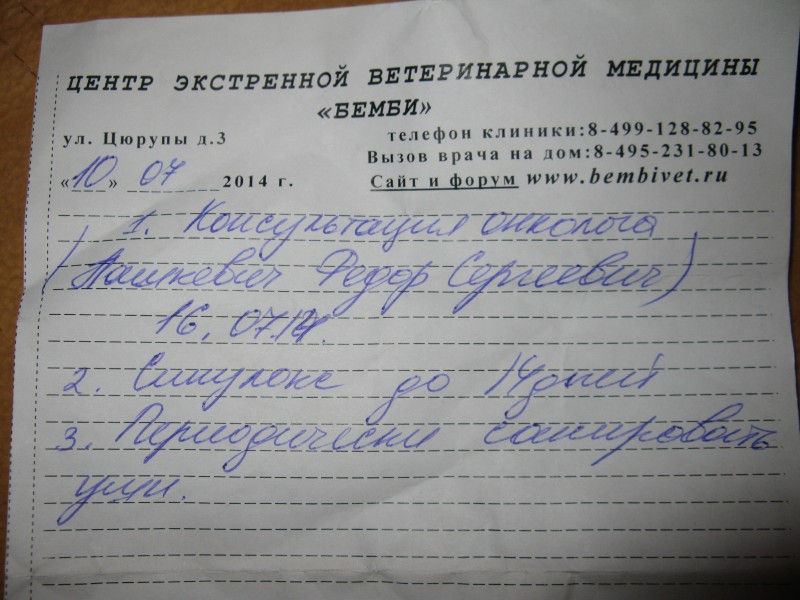 ЦЕНТР ЭКСТРЕННОЙ ВЕТЕРИНАРНОЙ МЕДИЦИНЫ
«БЕМБИ»
ул. Цюрупы д.3 телефон клиники:8-499-128-82-95
Вызов врача на дом:8-495-231-80-13
«10» 07 2014 г. Сайт и форум www.bembivet.ru
1. Консультация онколога
(Пашкевич Федор Сергеевич)
16.07.14г.
2. Синулокс до 14 дней
3. Периодически санировать
уши.